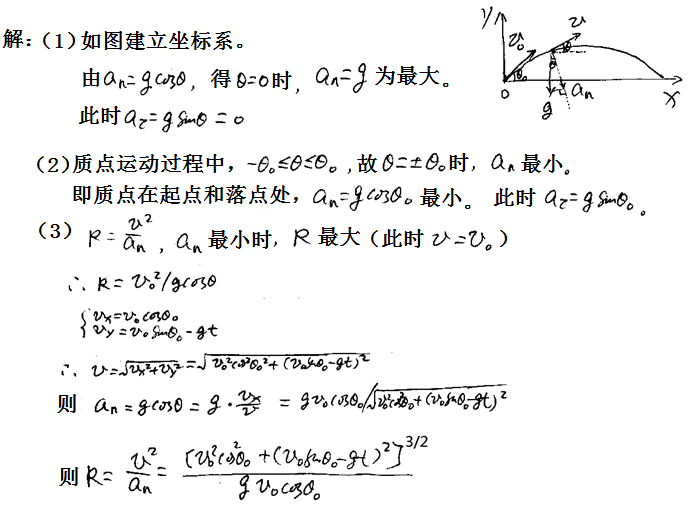 解：(1) 如图建立坐标系。
由 aₙ=g cosθ, 得 θ=0 时, aₙ=g 为最大。
此时 a_τ=g sinθ=0
(2) 质点运动过程中, -θ₀≤θ≤θ₀, 故 θ=±θ₀ 时, aₙ 最小。
即质点在起点和落点处, aₙ=g cosθ₀ 最小。 此时 a_τ=g sinθ₀。
(3) R=v²/aₙ, aₙ 最小时, R 最大 (此时 v=v₀)
∴ R=v₀²/g cosθ
{ vₓ=v₀ cosθ₀
v_y=v₀ sinθ₀-gt
∴ v=√(vₓ²+v_y²)=√(v₀²cos²θ₀²+(v₀ sinθ₀-gt)²)
则 aₙ=g cosθ=g·vₓ/v=g v₀ cosθ₀/√(v₀²cos²θ₀+(v₀ sinθ₀-gt)²)
则 R=v²/aₙ=[v₀²cos²θ₀+(v₀ sinθ₀-gt)²]^(3/2)/(g v₀ cosθ₀)
y
v₀
v
θ
θ
θ₀
O
g
aₙ
X